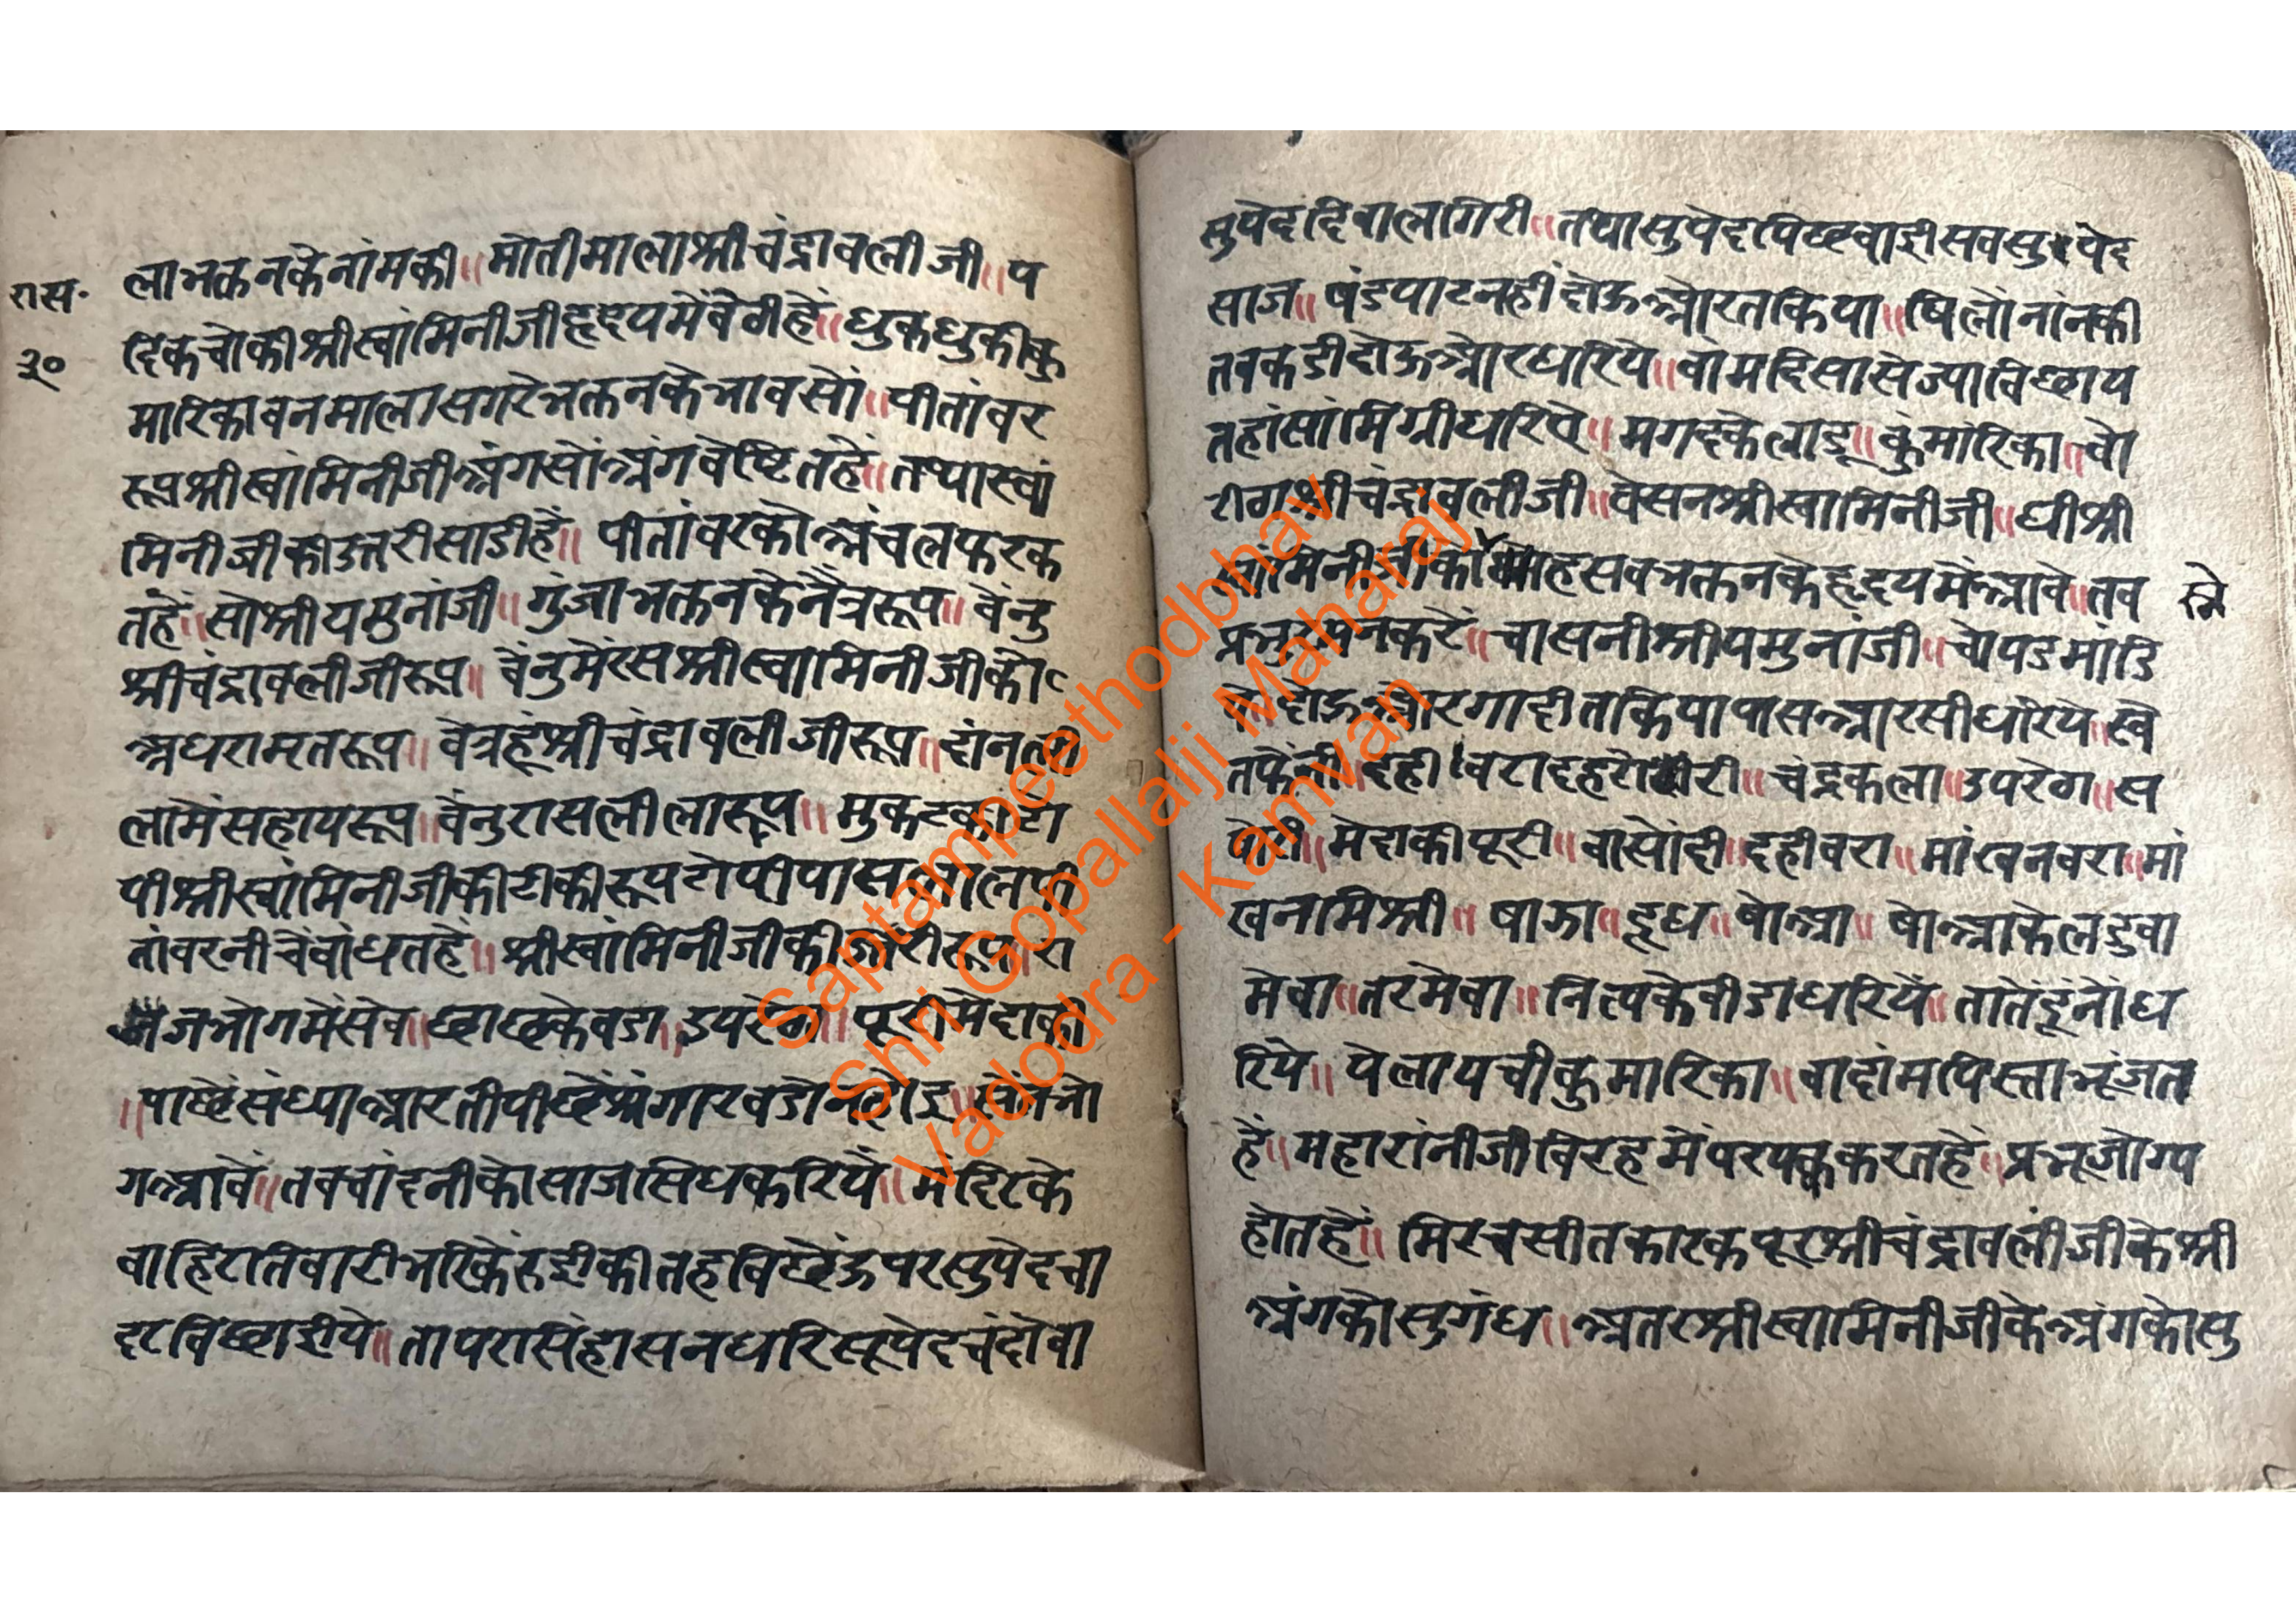 रास.
३०
लाभक्तनकेनांमकी॥ मोतीमालाश्रीचंद्रावलीजी॥ प
दिकचोकीश्रीस्वांमिनीजीहृदयमेंबेठीहें॥ धुकधुकीकु
मारिकावनमालासगरेभक्तनकेभावसों॥ पीतांबर
रूपश्रीस्वांमिनीजीअंगसोंअंगवेष्टितहे॥ तथास्वां
मिनीजीकीउतरीसाडीहें॥ पीतांवरकोअंचलफरक
तहें॥ सोश्रीयमुनांजी॥ गुंजाभक्तनकेनैत्ररूप॥ वेंनु
श्रीचंद्रावलीजीरूप॥ वेंनुमेंरसश्रीस्वामिनीजीको
अधरामतरूप॥ वेत्रहूंश्रीचंद्रावलीजीरूप॥ दांनली
लामेंसहायरूप॥ वेंनुरासलीलारूप॥ मुकटकीटो
पीश्रीस्वांमिनीजीकीटीकीरूपटोपीपासलालपी
तांवरनीचेंबांधतहें॥ श्रीस्वांमिनीजीकी रूप॥ रा
जभोगमेंसेव॥ छाछकेवडा॥ उपरेठा॥ पूरीमेदाकी
॥पाछेंसंध्याआरतीपीछेंश्रंगारवडोनहोइ॥ सेंनभो
गआवें॥ तबचांदनीकोसाजसिधकरियें॥ मंदिरके
वाहिरातिवारीभरिकेंरुईकीतहबिछेंऊपरसुपेदचा
दरबिछाईये॥ तापरासिंहासनधरिसूपेदचंदोवा
सुपेददिवालागिरी॥ तथासुपेदपिछवाईसवसुपेद
साज॥ षंडपाटनहींदोऊओरतकिया॥ षिलोंनांनकी
तबकडीदोऊओरधरिये॥ वांमदिसासेज्याबिछाय
तहांसांमिग्रीधरिवे॥ मगदकेलाडू॥ कुंमारिका॥ चो
रीठाश्रीचंद्रावलीजी॥ वेसनश्रीस्वामिनीजी॥ घीश्री
स्वांमिनीजीको हसवभक्तनकेहृदयमेंआवे॥ तव
स्ने
प्रभु करें॥ चासनीश्रीयमुनांजी॥ चोपडमांडि
केंदोऊओरगादीतकियापासआरसीधरिये॥ स्वे
तफेंनी॥ दही वरादहरोरी॥ चंद्रकला॥ उपरेठा॥ स
मेदाकीपूरी॥ वासोंदी॥ दहीवरा॥ मांखनवरा॥ मां
खनमिश्री॥ षाजा॥ दूध॥ षोआ॥ षोआकेलडुवा
मेवा॥ तरमेवा॥ नित्यकेबीडाधरियें॥ तातेंदूंनोंध
रिये॥ पेलायचीकुमारिका॥ बादांमपिस्ताभूंजत
हें॥ महारांनीजीविरहमेंपरपक्ककरतहें॥ प्रभूजोग्य
होतहें॥ मिरचसीतकारकपूरश्रीचंद्रावलीजीकेश्री
अंगकोसुगंध॥ अतरश्रीस्वामिनीजीकेअंगकोसु
Saptampeethodbhav
Shri Gopallalji Maharaj
Vadodra - Kamvan